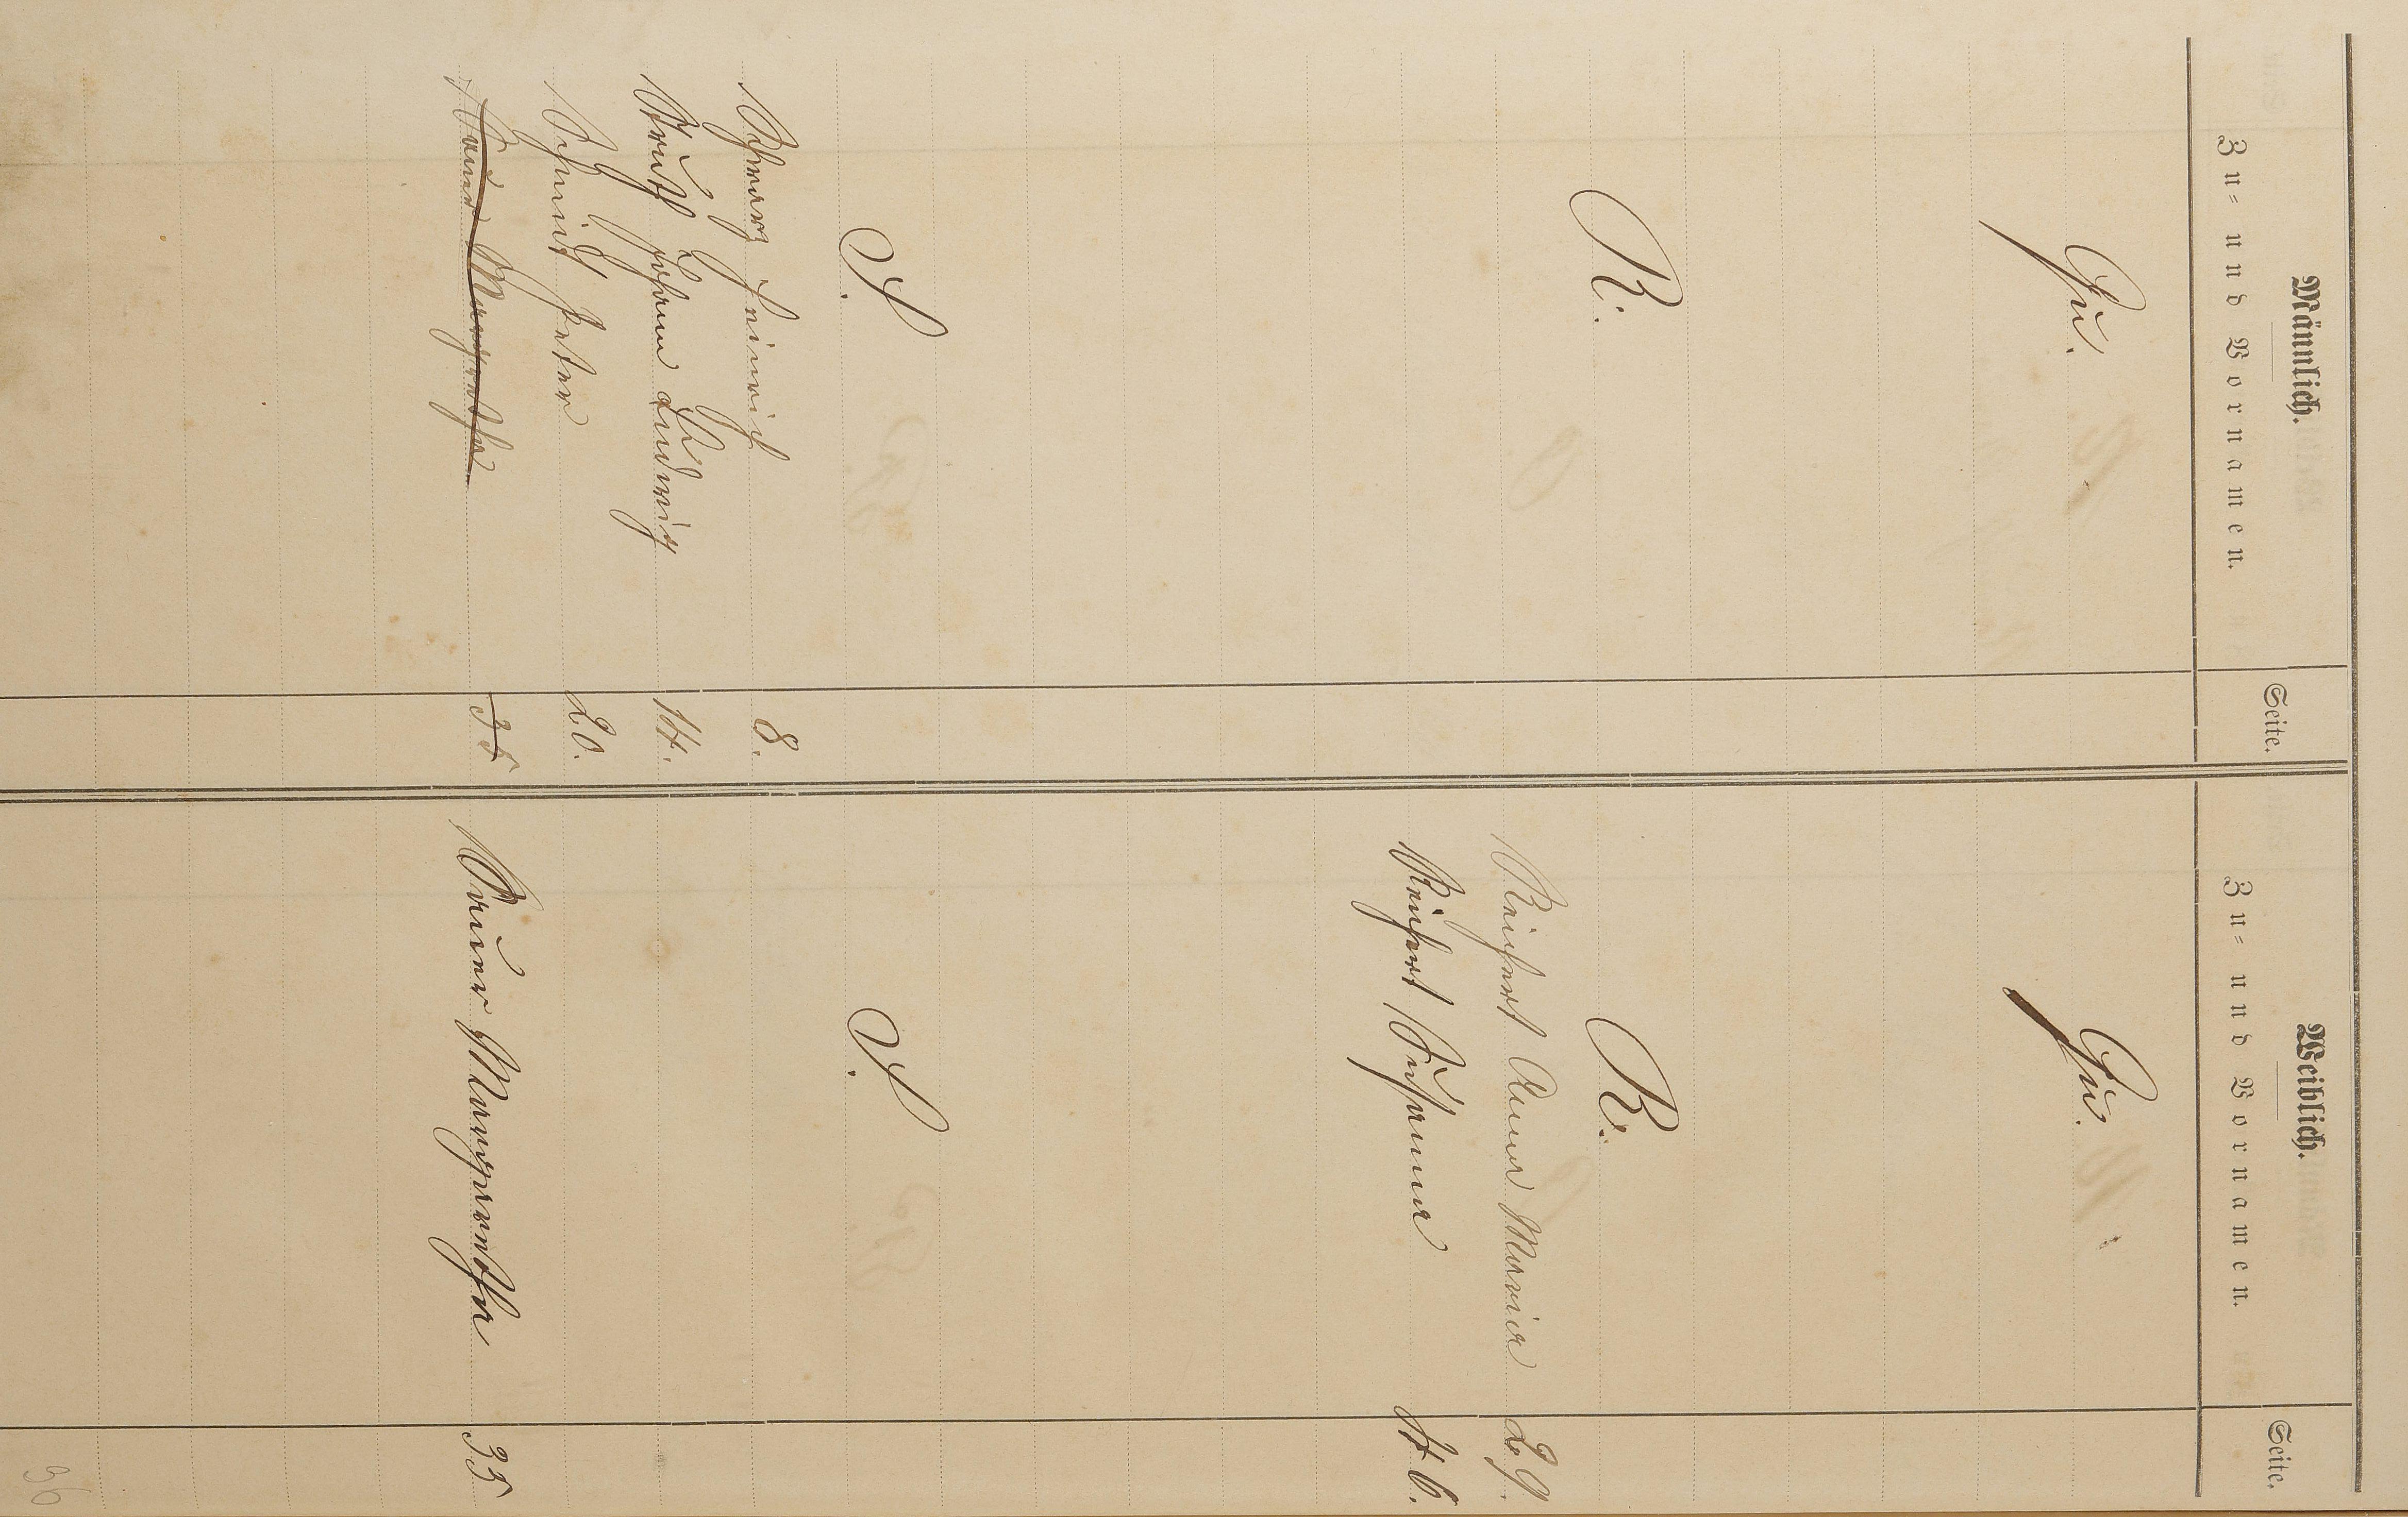 Männlich.
Zu- und Vornamen.
Seite.
Qu.
R.
S.
Schwarz Heinrich 8.
Strutt Johann Ludwig 14.
Schmidt Peter 20.
Sauer Margrethe 35
Weiblich.
Zu- und Vornamen.
Seite.
Qu.
R.
Reichert Anna Maria 29.
Reichert Susanna 46.
S.
Sauer Margrethe 35
36